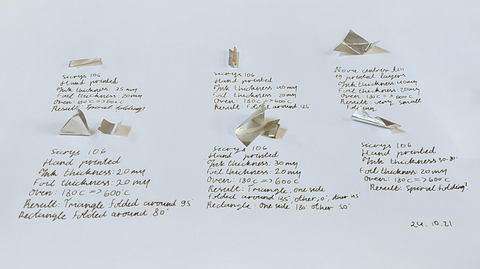 Sicoys 106
Hand printed
Ink thickness: 35 my
Foil thickness: 20 my
Oven: 180°C => 600°C
Result: Special folding!
Sicoys 106
Hand printed
Ink thickness: 40 my
Foil thickness: 20 my
Oven: 180°C => 600°C
Result: Folded around 135°
printed layers
Ink thickness: 40 my
Foil thickness: 20 my
Oven: 180°C => 600°C
Result: very small
Sicoys 106
Hand printed
Ink thickness: 20 my
Foil thickness: 20 my
Oven: 180°C => 600°C
Result: Triangle folded around 95°
Rectangle folded around 80°
Sicoys 106
Hand printed
Ink thickness: 30 my
Foil thickness: 20 my
Oven: 180°C => 600°C
Result: Triangle, one side
around 135° other 0°
Rectangle: One side 180° other 50°
Sicoys 106
Hand printed
Ink thickness 30-
Foil thickness: 20 my
Oven: 180°C => 600°C
Result: Special folding!
24.10.21